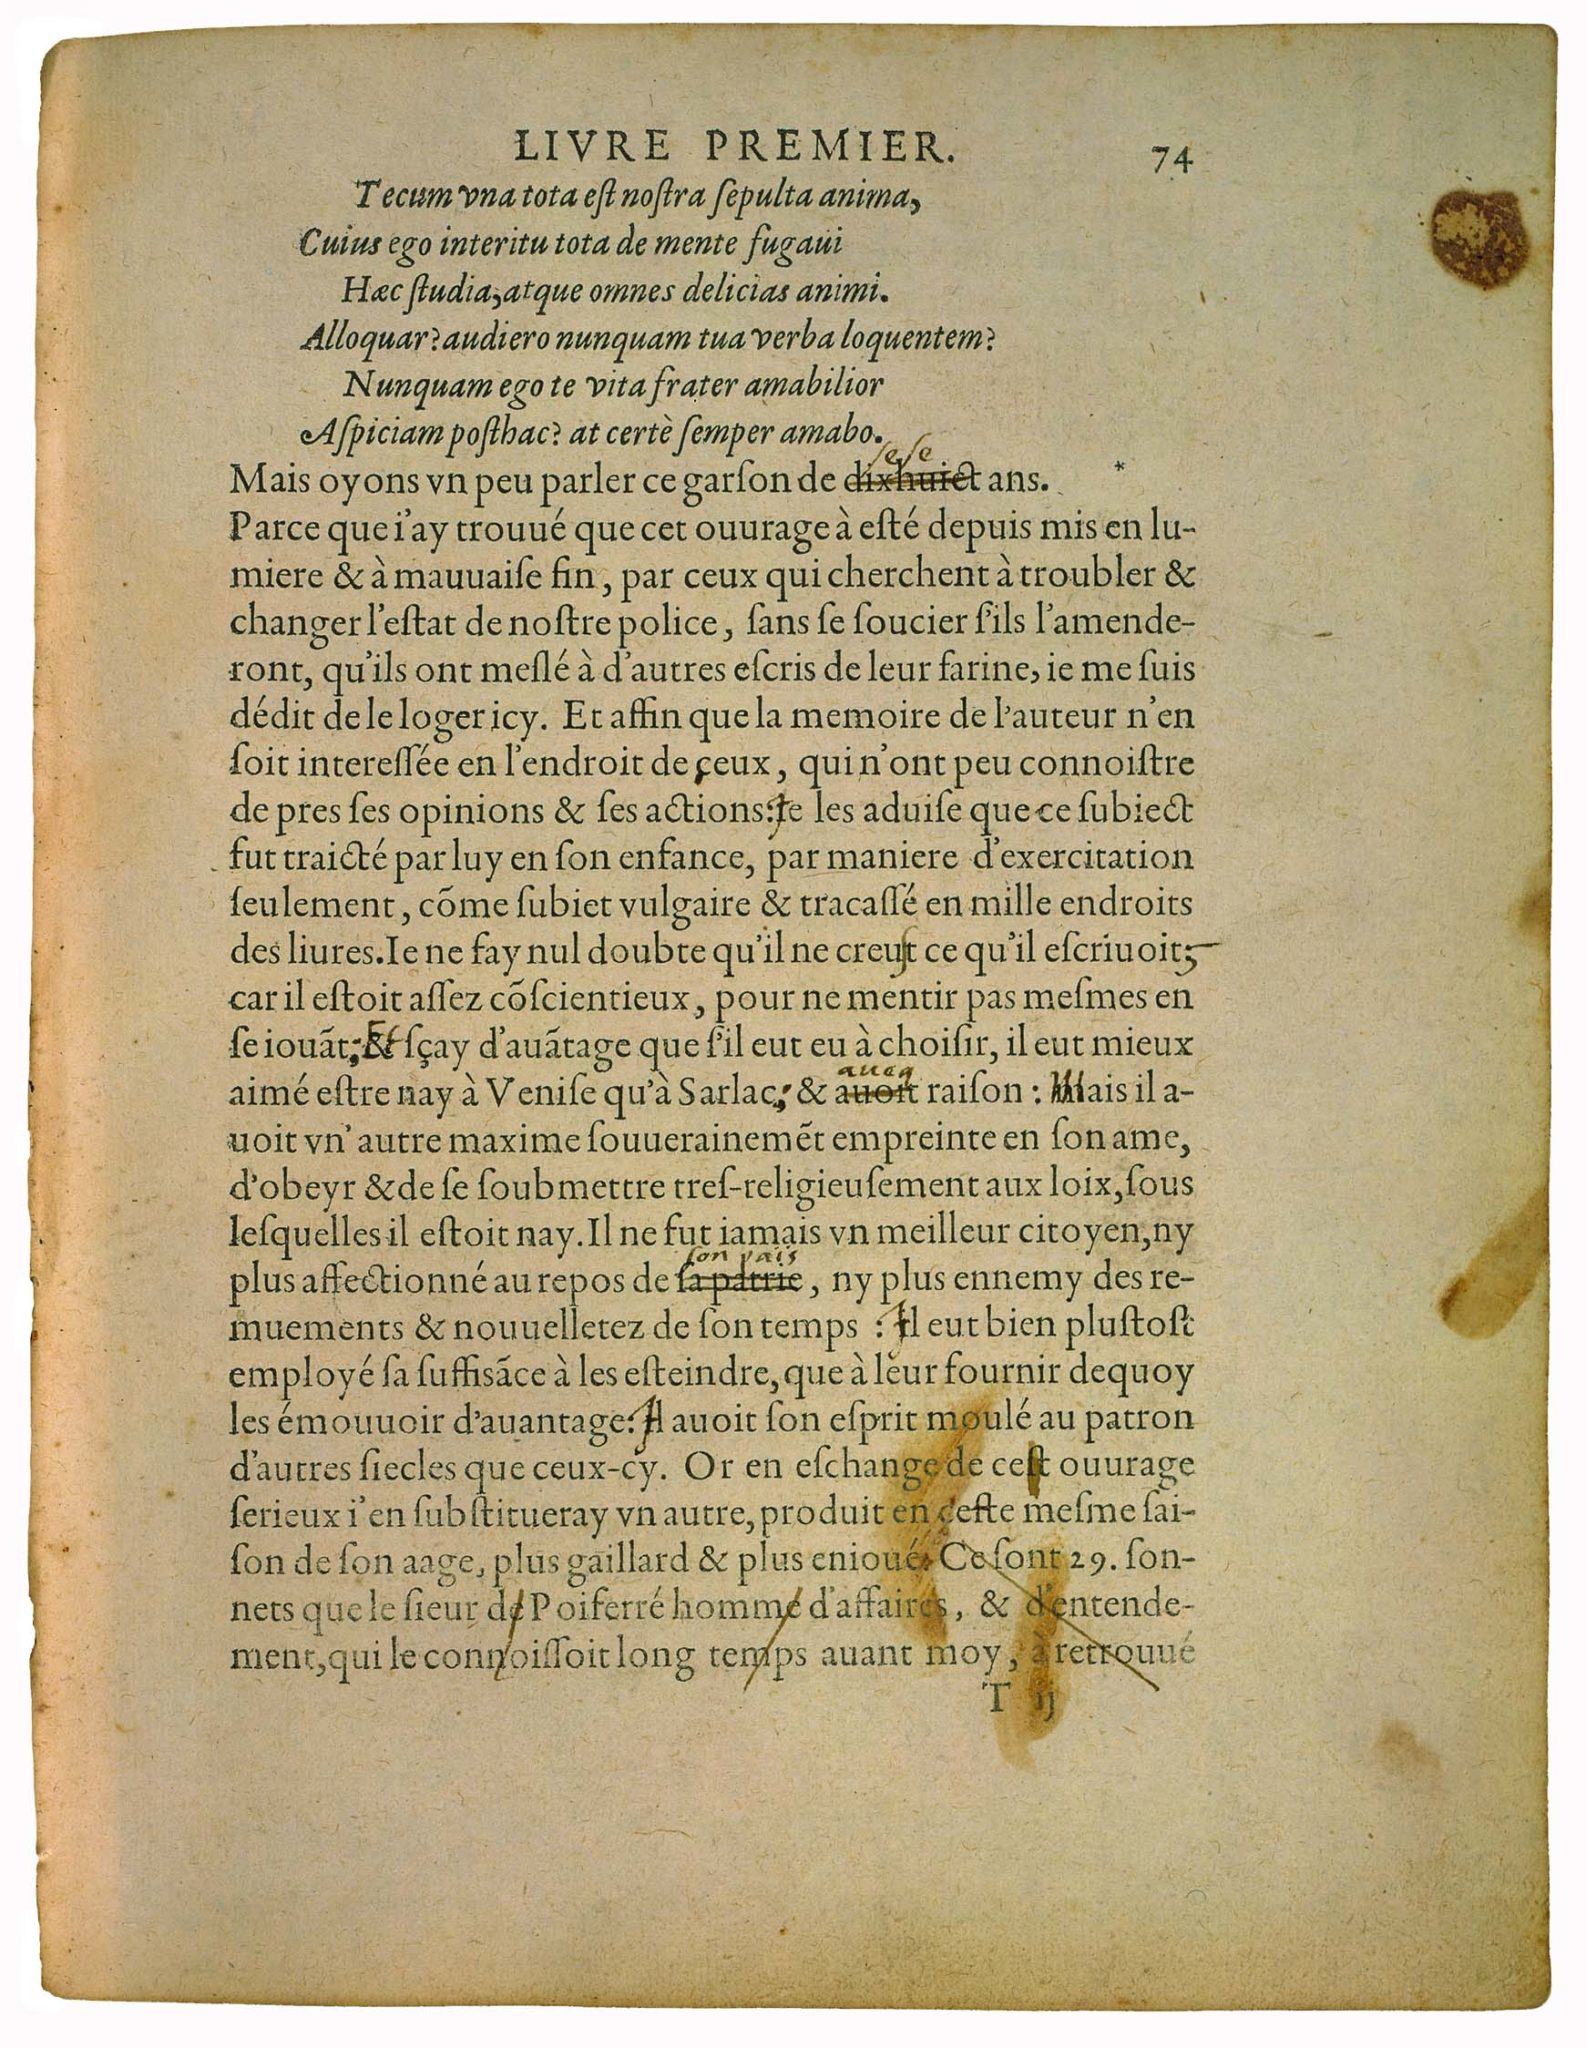 LIVRE PREMIER. 74
Tecum vna tota est nostra sepulta anima,
Cuius ego interitu tota de mente fugaui
Hæc studia, atque omnes delicias animi.
Alloquar? audiero nunquam tua verba loquentem?
Nunquam ego te vita frater amabilior
Aspiciam posthac? at certè semper amabo.
sese
Mais oyons vn peu parler ce garſon de dixhuict ans. *
Parce que i'ay trouué que cet ouurage à eſté depuis mis en lu-
miere & à mauuaiſe fin, par ceux qui cherchent à troubler &
changer l'eſtat de noſtre police, ſans ſe ſoucier ſ'ils l'amende-
ront, qu'ils ont meſlé à d'autres eſcris de leur farine, ie me ſuis
dédit de le loger icy. Et affin que la memoire de l'auteur n'en
ſoit intereſſée en l'endroit de ceux, qui n'ont peu connoiſtre
de pres ſes opinions & ſes actions: Ie les aduiſe que ce ſubiect
fut traicté par luy en ſon enfance, par maniere d'exercitation
ſeulement, cõme ſubiet vulgaire & tracaſſé en mille endroits
des liures. Ie ne fay nul doubte qu'il ne creuſt ce qu'il eſcriuoit,
car il eſtoit aſſez cõſcientieux, pour ne mentir pas meſmes en
ſe iouãt: Et & ſçay d'auãtage que ſ'il eut eu à choiſir, il eut mieux
aueq
aimé eſtre nay à Veniſe qu'à Sarlac; & auoit raiſon : Mais il a-
uoit vn' autre maxime ſouuerainemẽt empreinte en ſon ame,
d'obeyr & de ſe ſoubmettre treſ-religieuſement aux loix, ſous
leſquelles il eſtoit nay. Il ne fut iamais vn meilleur citoyen, ny
son païs
plus affectionné au repos de ſa patrie, ny plus ennemy des re-
muements & nouuelletez de ſon temps : Il eut bien pluſtoſt
employé ſa ſuffiſãce à les eſteindre, que à leur fournir dequoy
les émouuoir d'auantage: Il auoit ſon eſprit moulé au patron
d'autres ſiecles que ceux-cy. Or en eſchange de ceſt ouurage
ſerieux i'en ſubſtitueray vn autre, produit en ceſte meſme ſai-
ſon de ſon aage, plus gaillard & plus enioué. Ce ſont 29. ſon-
nets que le ſieur de Poiferré homme d'affaires, & d'entende-
ment, qui le connoiſſoit long temps auant moy, à retrouué
T ij